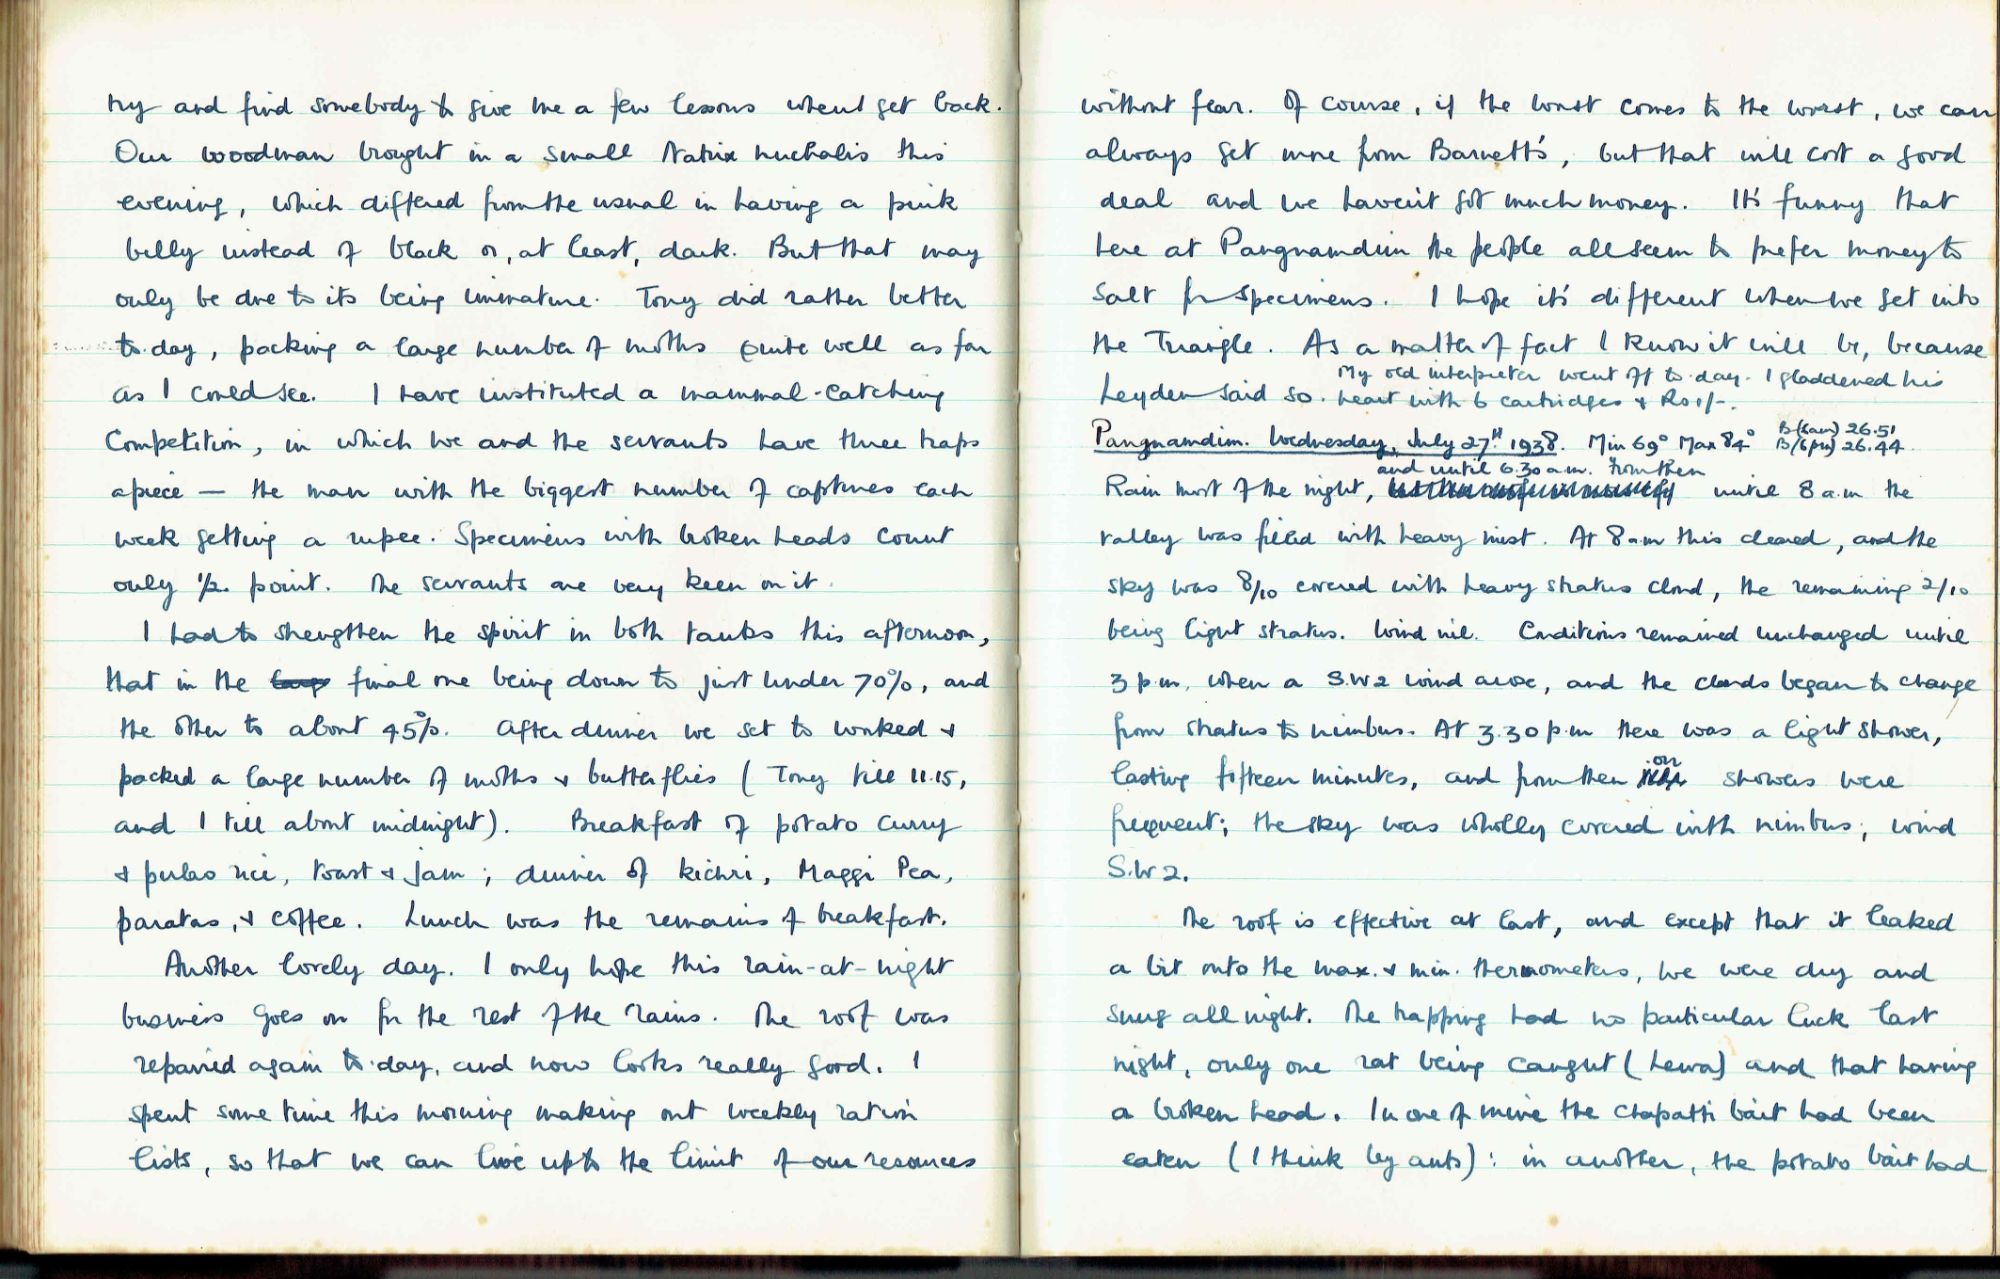 try and find somebody to give me a few lessons when I get back.
Our woodman brought in a small Natrix nuchalis this
evening, which differed from the usual in having a pink
belly instead of black or, at least, dark. But that may
only be due to its being immature. Tony did rather better
to-day, packing a large number of moths quite well as far
as I could see. I have instituted a mammal-catching
Competition, in which we and the servants have three traps
apiece — the man with the biggest number of captures each
week getting a rupee. Specimens with broken heads count
only 1/2 point. The servants are very keen on it.
I had to strengthen the spirit in both tanks this afternoon,
that in the final one being down to just under 70%, and
the other to about 45%. After dinner we set to worked &
packed a large number of moths & butterflies (Tony till 11.15,
and I till about midnight). Breakfast of potato curry
& pulao rice, toast & jam; dinner of kichri, Maggi Pea,
paratas, & coffee. Lunch was the remains of breakfast.
Another lovely day. I only hope this rain-at-night
business goes on for the rest of the rains. The roof was
repaired again to-day, and now looks really good. I
spent some time this morning making out weekly ration
lists, so that we can live up to the limit of our resources
without fear. Of course, if the worst comes to the worst, we can
always get more from Barnett's, but that will cost a good
deal and we haven't got much money. It's funny that
here at Pangnamdim the people all seem to prefer money to
salt for specimens. I hope it's different when we get into
the Triangle. As a matter of fact I know it will be, because
Leyden said so. My old interpreter went off to-day. I gladdened his
heart with 6 cartridges & Rs 1/-.
Pangnamdim. Wednesday, July 27th 1938. Min 69° Max 84° B(6am) 26.51
B(6pm) 26.44
Rain most of the night, and until 6.30 a.m. From then until 8 a.m the
valley was filled with heavy mist. At 8 am this cleared, and the
sky was 8/10 covered with heavy stratus cloud, the remaining 2/10
being light stratus. Wind nil. Conditions remained unchanged until
3 p.m, when a S.W 2 wind arose, and the clouds began to change
from stratus to nimbus. At 3.30 p.m there was a light shower,
lasting fifteen minutes, and from then on showers were
frequent; the sky was wholly covered with nimbus; wind
S.W 2.
The roof is effective at last, and except that it leaked
a bit onto the max. & min. thermometers, we were dry and
snug all night. The trapping had no particular luck last
night, only one rat being caught (Lewa) and that having
a broken head. In one of mine the chapatti bait had been
eaten (I think by ants): in another, the potato bait had